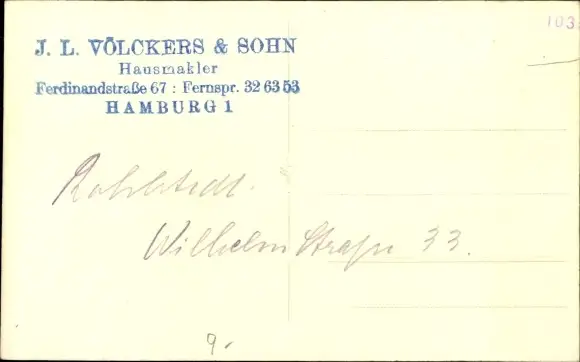 103
J. L. VÖLCKERS & SOHN
Hausmakler
Ferdinandstraße 67 : Fernspr. 32 63 53
HAMBURG 1
Rahlstedt.
Wilhelm Straße 33.
9.